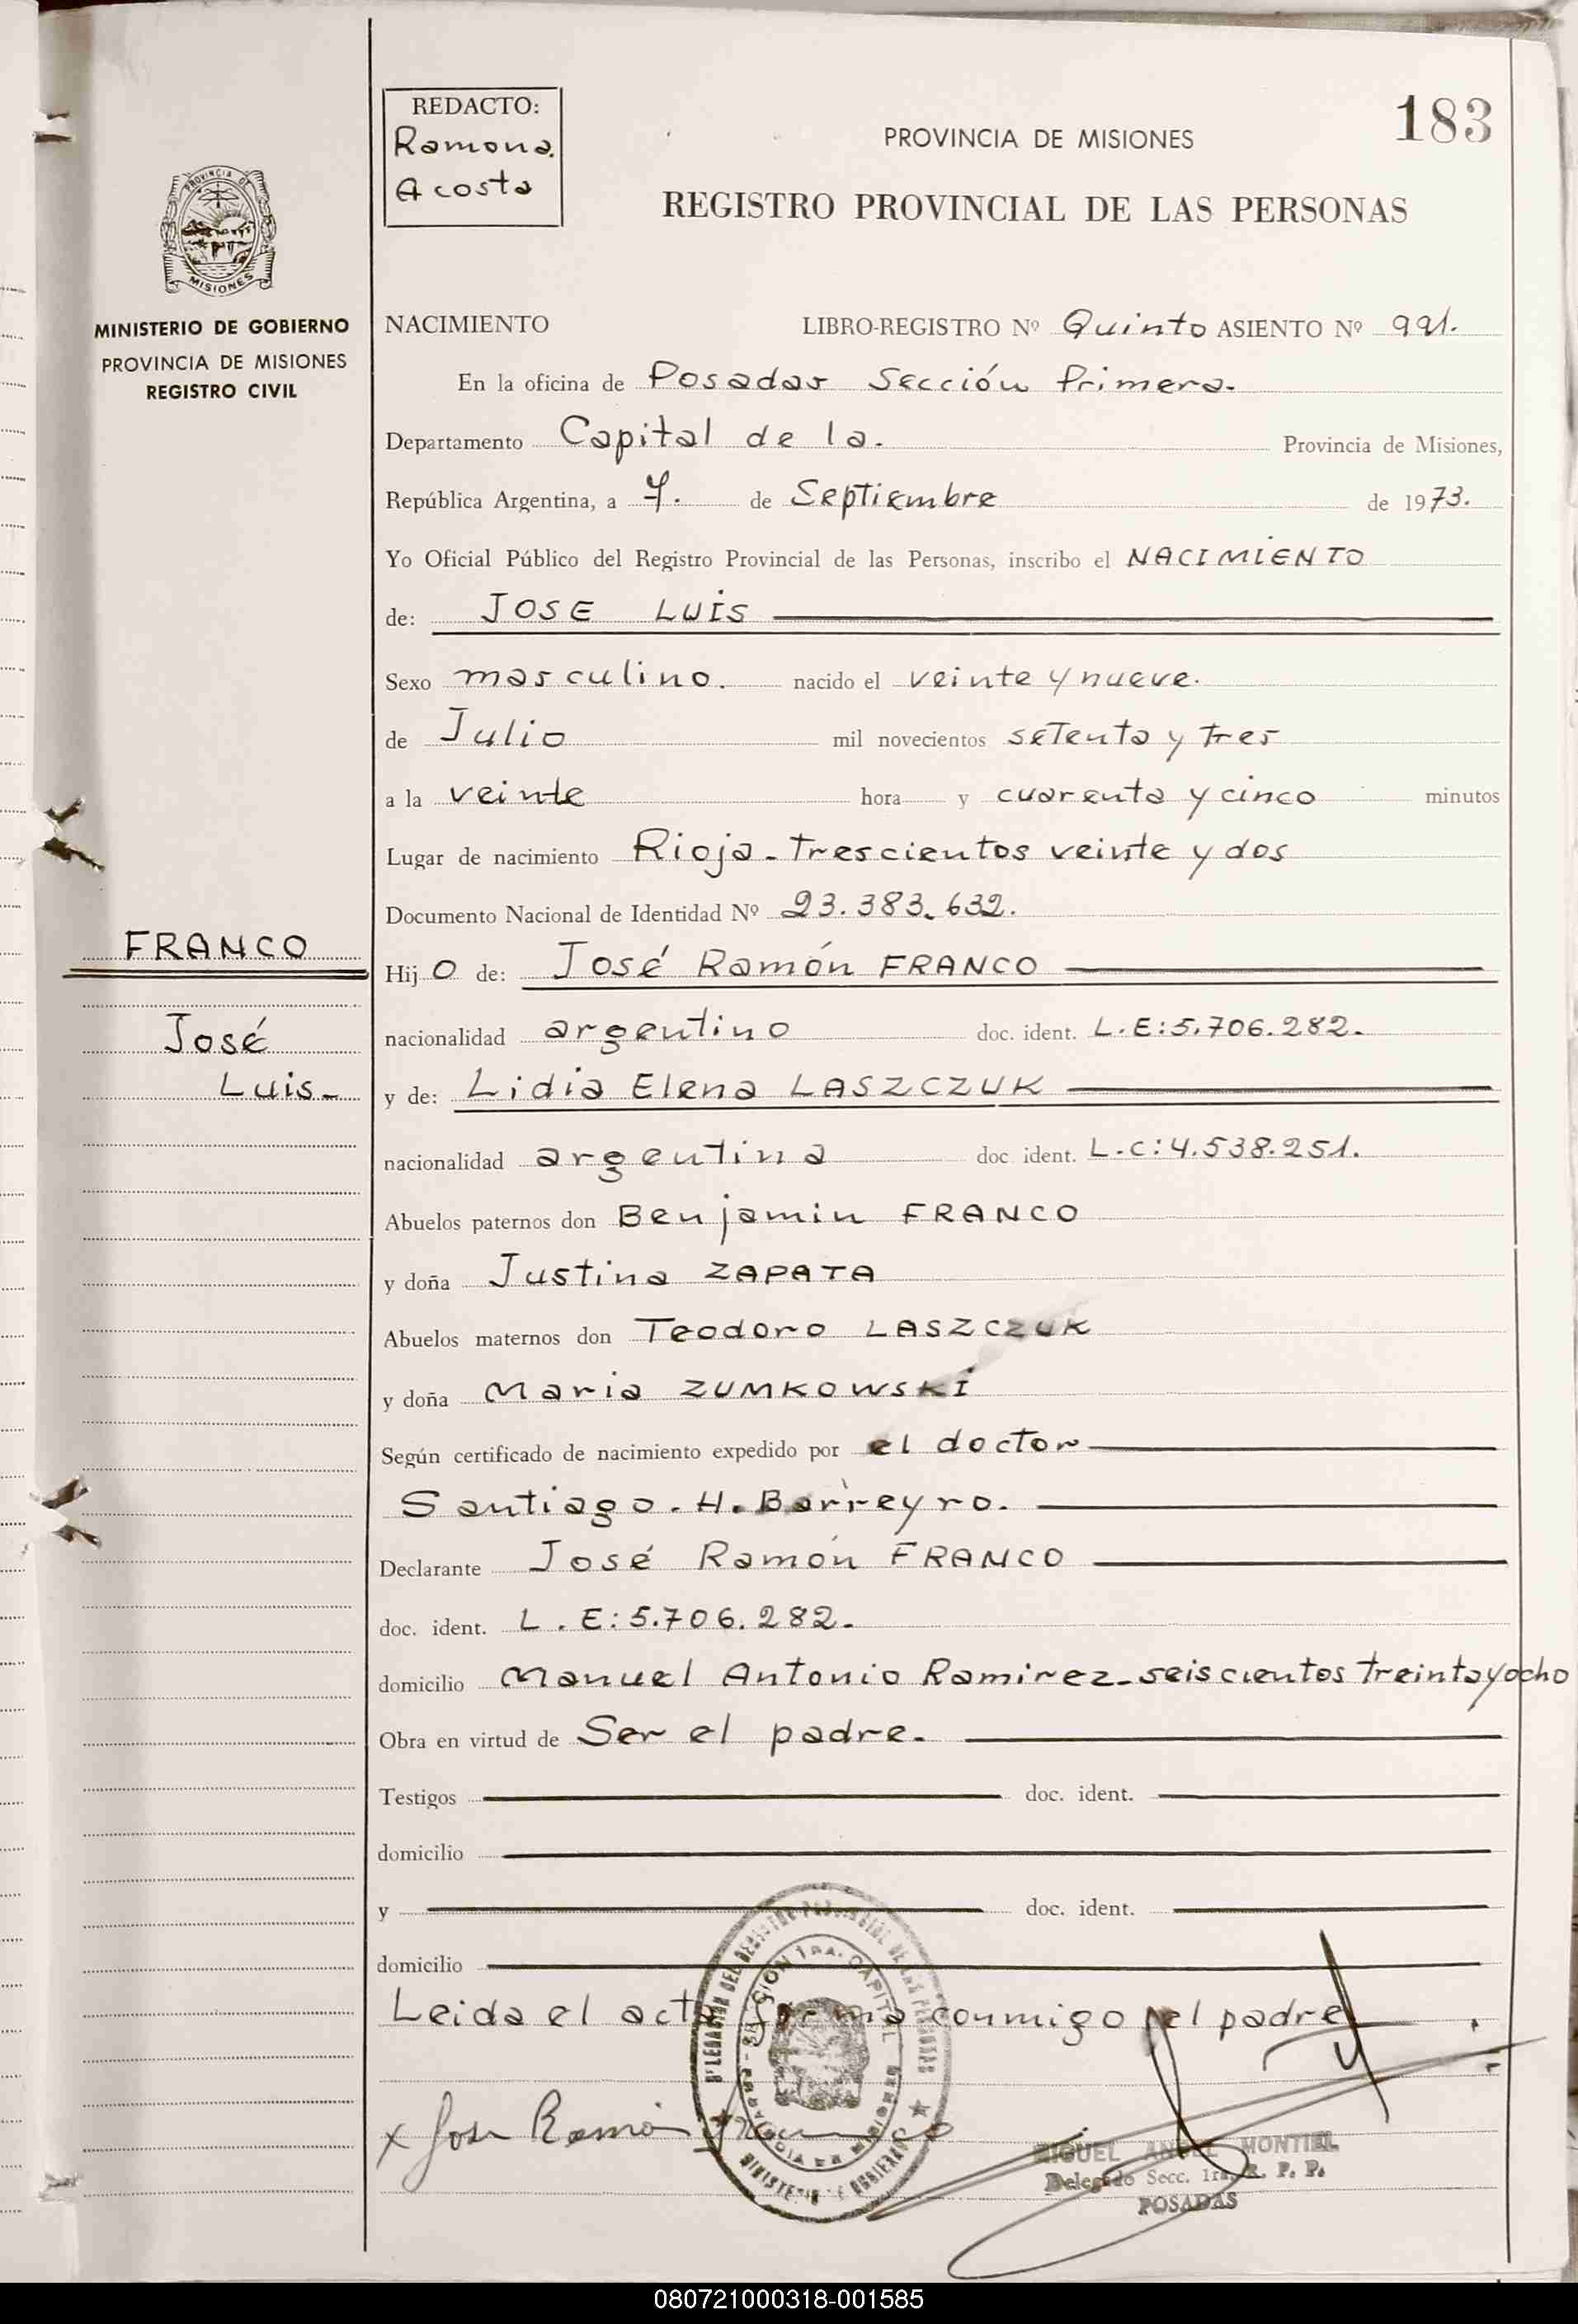 REDACTO:
Ramona.
Acosta
183
PROVINCIA DE MISIONES
REGISTRO PROVINCIAL DE LAS PERSONAS
PROVINCIA DE
MISIONES
MINISTERIO DE GOBIERNO
PROVINCIA DE MISIONES
REGISTRO CIVIL
NACIMIENTO LIBRO-REGISTRO Nº Quinto ASIENTO Nº 991.
En la oficina de Posadas Sección Primera.
Departamento Capital de la. Provincia de Misiones,
República Argentina, a 7. de Septiembre de 1973.
Yo Oficial Público del Registro Provincial de las Personas, inscribo el NACIMIENTO
de: JOSE LUIS
Sexo masculino. nacido el veinte y nueve.
de Julio mil novecientos setenta y tres
a la veinte hora y cuarenta y cinco minutos
Lugar de nacimiento Rioja - trescientos veinte y dos
Documento Nacional de Identidad Nº 23.383.632.
FRANCO
Hijo de: José Ramón FRANCO
José
nacionalidad argentino doc. ident. L.E:5.706.282.
Luis-
y de: Lidia Elena LASZCZUK
nacionalidad argentina doc. ident. L.C:4.538.251.
Abuelos paternos don Benjamin FRANCO
y doña Justina ZAPATA
Abuelos maternos don Teodoro LASZCZUK
y doña Maria ZUMKOWSKI
Según certificado de nacimiento expedido por el doctor
Santiago. H. Barreyro.
Declarante José Ramón FRANCO
doc. ident. L.E:5.706.282.
domicilio Manuel Antonio Ramirez - seiscientos treinta y ocho
Obra en virtud de Ser el padre.
Testigos doc. ident.
domicilio
y doc. ident.
domicilio
Leida el acta firma conmigo el padre
x José Ramón Franco
MIGUEL ANGEL MONTIEL
Delegado Secc. 1ra. R. P. P.
POSADAS
080721000318-001585